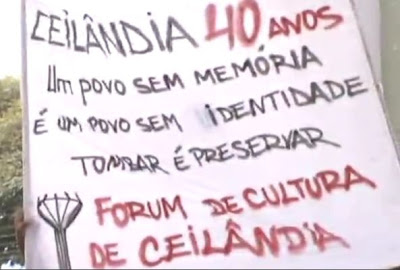 CEILÂNDIA 40 ANOS
Um povo SEM MEMÓRIA
É UM POVO SEM IDENTIDADE
TOMBAR É PRESERVAR
FORUM DE CULTURA
DE CEILÂNDIA